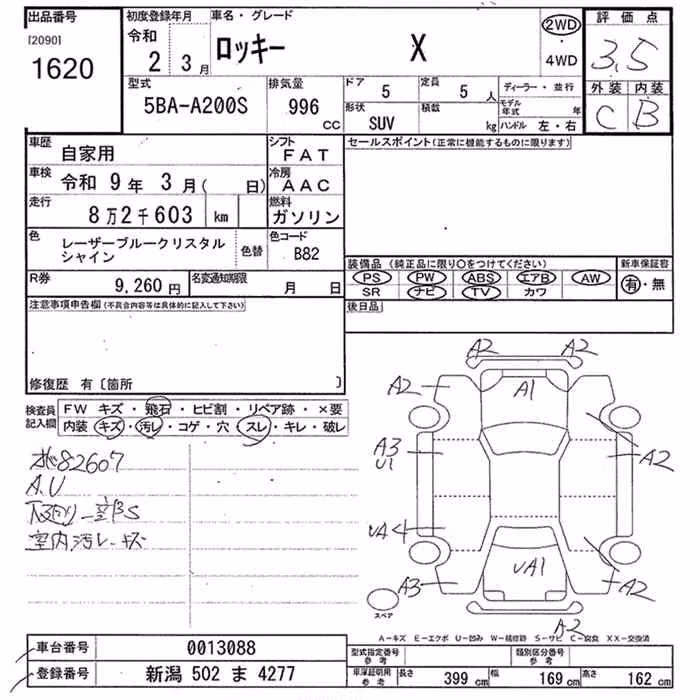 出品番号
[2090]
1620
初度登録年月
令和
2 3月
車名・グレード
ロッキー X
2WD
・
4WD
評価点
3.5
外装 内装
C B
型式
5BA-A200S
排気量
996 CC
ドア 5
定員 5 人
形状 SUV
積載 kg
ディーラー・並行
モデル年式 年
ハンドル 左・右
車歴
自家用
シフト
FAT
車検
令和 9年 3月( 日)
冷房
AAC
走行
8万2千603 km
燃料
ガソリン
色
レーザーブルークリスタル
シャイン
色替
色コード
B82
R券
9,260円
名変通知期限
月 日
セールスポイント(正常に機能するものに限ります)
装備品 (純正品に限り○をつけてください)
新車保証書
PS PW ABS エアB AW
SR ナビ TV カワ
有・無
後日品
注意事項申告欄(不具合内容等は具体的に記入して下さい)
修復歴 有〔箇所 〕
検査員
記入欄
FW キズ・飛石・ヒビ割・リペア跡・×要
内装 キズ・汚レ・コゲ・穴・スレ・キレ・破レ
82607
A.U
下廻り一部S
室内汚レ キズ
A2 A2
A2 A1
A3
U1
A2
UA4
A3 UA1 A2
スペア
A2
A−キズ E−エクボ U−凹み W−補修跡 S−サビ C−腐食 XX−交換済
車台番号 0013088
登録番号 新潟 502 ま 4277
型式指定番号
参考
類別区分番号
参考
車庫証明用
参考
長さ 399 cm
幅 169 cm
高さ 162 cm